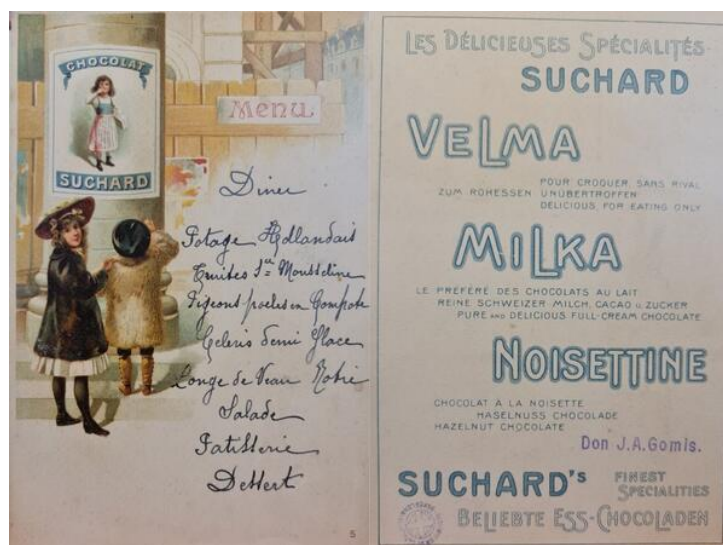 CHOCOLAT
SUCHARD
Menu
Diner
Potage Hollandais
Truites Sce Mousseline
Pigeons poeles en Compote
Celeris demi Glace
Longe de Veau Rotie
Salade
Patisserie
Dessert
5
LES DÉLICIEUSES SPÉCIALITÉS
SUCHARD
VELMA
POUR CROQUER, SANS RIVAL
ZUM ROHESSEN UNÜBERTROFFEN
DELICIOUS, FOR EATING ONLY
MILKA
LE PRÉFÉRÉ DES CHOCOLATS AU LAIT
REINE SCHWEIZER MILCH, CACAO u. ZUCKER
PURE AND DELICIOUS FULL-CREAM CHOCOLATE
NOISETTINE
CHOCOLAT A LA NOISETTE
HASELNUSS CHOCOLADE
HAZELNUT CHOCOLATE
Don J.A.Gomis.
SUCHARD'S FINEST
SPECIALITIES
BELIEBTE ESS-CHOCOLADEN